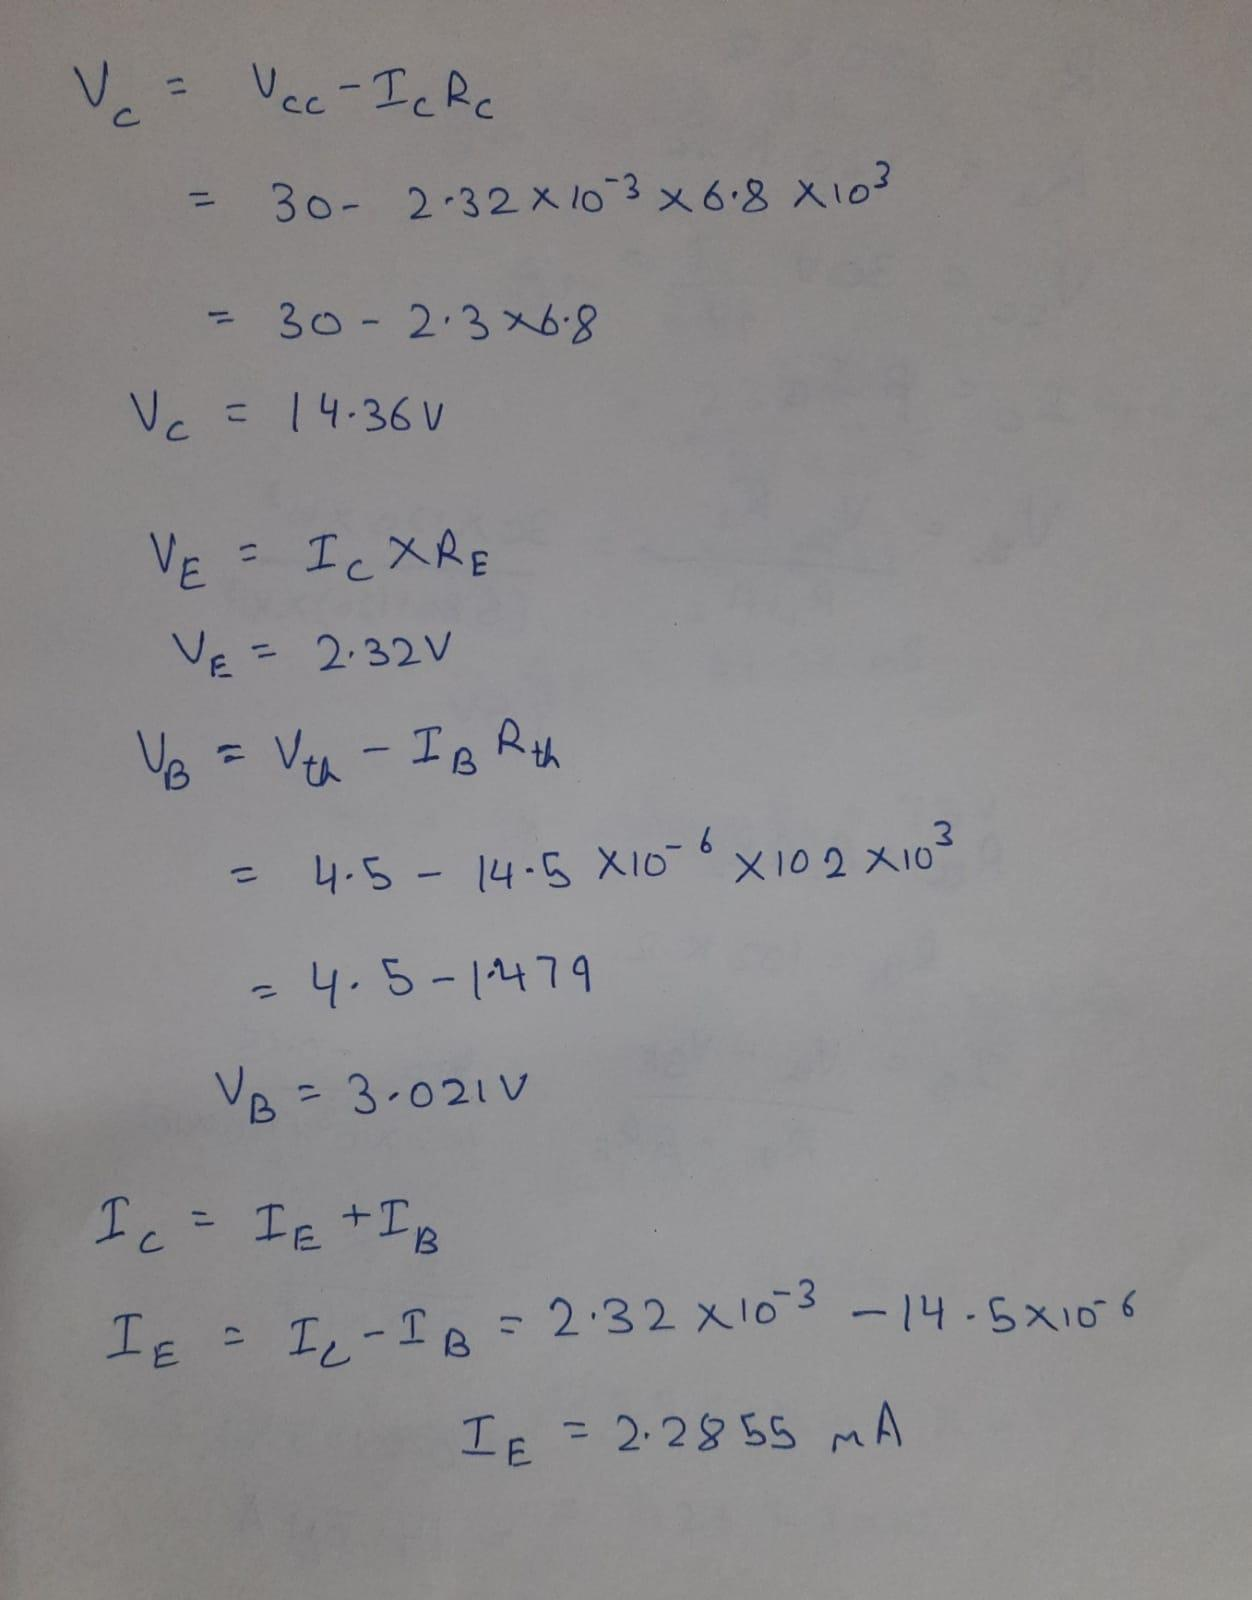 V_C = V_CC - I_C R_C
= 30 - 2.32 × 10^-3 × 6.8 × 10^3
= 30 - 2.3 × 6.8
V_C = 14.36 V
V_E = I_C × R_E
V_E = 2.32 V
V_B = V_th - I_B R_th
= 4.5 - 14.5 × 10^-6 × 102 × 10^3
= 4.5 - 1.479
V_B = 3.021 V
I_C = I_E + I_B
I_E = I_C - I_B = 2.32 × 10^-3 - 14.5 × 10^-6
I_E = 2.2855 mA